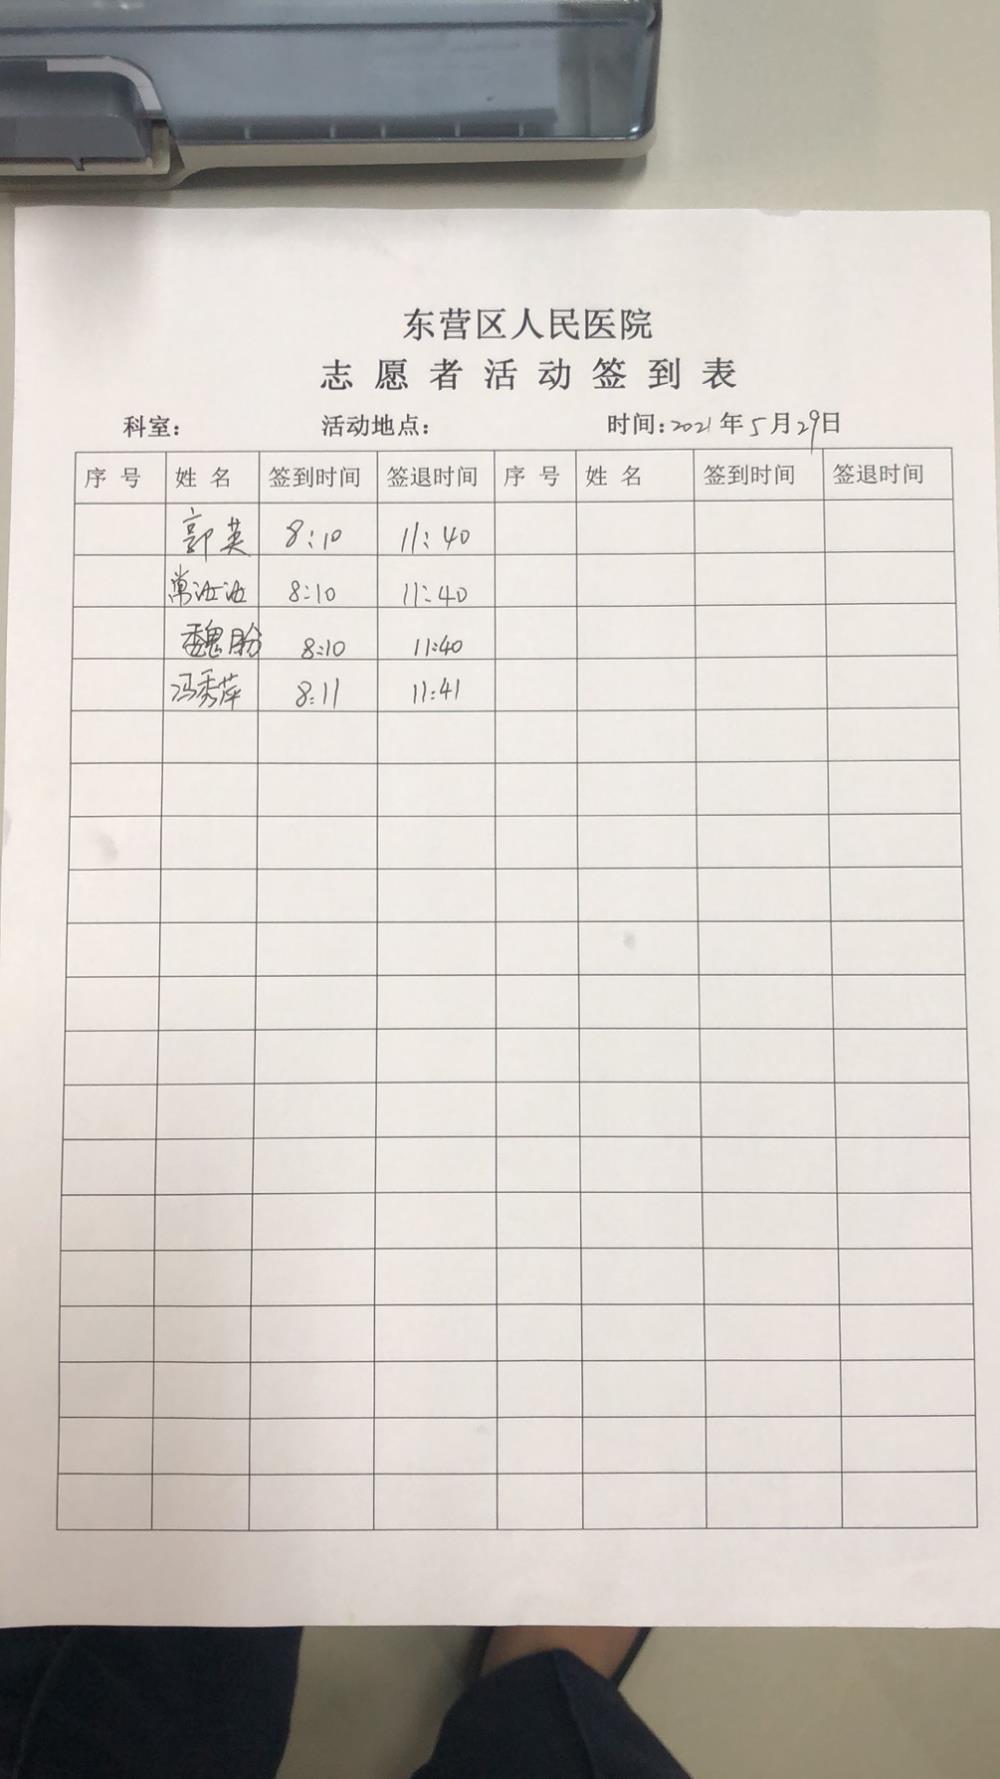 东营区人民医院
志愿者活动签到表
科室： 活动地点： 时间：2021年5月29日
序号 姓名 签到时间 签退时间 序号 姓名 签到时间 签退时间
郭英 8:10 11:40
8:10 11:40
魏盼 8:10 11:40
冯秀萍 8:11 11:41